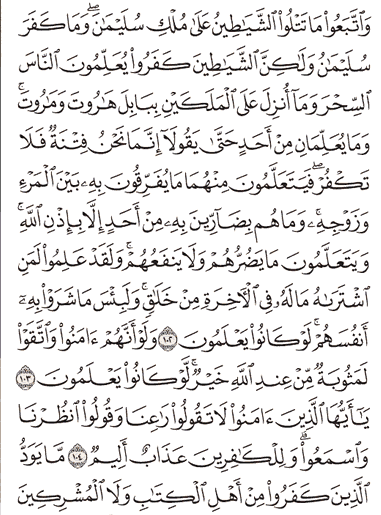 وَٱتَّبَعُواْ مَا تَتۡلُواْ ٱلشَّيَٰطِينُ عَلَىٰ مُلۡكِ سُلَيۡمَٰنَۖ وَمَا كَفَرَ
سُلَيۡمَٰنُ وَلَٰكِنَّ ٱلشَّيَٰطِينَ كَفَرُواْ يُعَلِّمُونَ ٱلنَّاسَ
ٱلسِّحۡرَ وَمَآ أُنزِلَ عَلَى ٱلۡمَلَكَيۡنِ بِبَابِلَ هَٰرُوتَ وَمَٰرُوتَۚ
وَمَا يُعَلِّمَانِ مِنۡ أَحَدٍ حَتَّىٰ يَقُولَآ إِنَّمَا نَحۡنُ فِتۡنَةٞ فَلَا
تَكۡفُرۡۖ فَيَتَعَلَّمُونَ مِنۡهُمَا مَا يُفَرِّقُونَ بِهِۦ بَيۡنَ ٱلۡمَرۡءِ
وَزَوۡجِهِۦۚ وَمَا هُم بِضَآرِّينَ بِهِۦ مِنۡ أَحَدٍ إِلَّا بِإِذۡنِ ٱللَّهِۚ
وَيَتَعَلَّمُونَ مَا يَضُرُّهُمۡ وَلَا يَنفَعُهُمۡۚ وَلَقَدۡ عَلِمُواْ لَمَنِ
ٱشۡتَرَىٰهُ مَا لَهُۥ فِي ٱلۡأٓخِرَةِ مِنۡ خَلَٰقٖۚ وَلَبِئۡسَ مَا شَرَوۡاْ بِهِۦٓ
أَنفُسَهُمۡۚ لَوۡ كَانُواْ يَعۡلَمُونَ ١٠٢ وَلَوۡ أَنَّهُمۡ ءَامَنُواْ وَٱتَّقَوۡاْ
لَمَثُوبَةٞ مِّنۡ عِندِ ٱللَّهِ خَيۡرٞۚ لَّوۡ كَانُواْ يَعۡلَمُونَ ١٠٣
يَٰٓأَيُّهَا ٱلَّذِينَ ءَامَنُواْ لَا تَقُولُواْ رَٰعِنَا وَقُولُواْ ٱنظُرۡنَا
وَٱسۡمَعُواْۗ وَلِلۡكَٰفِرِينَ عَذَابٌ أَلِيمٞ ١٠٤ مَّا يَوَدُّ
ٱلَّذِينَ كَفَرُواْ مِنۡ أَهۡلِ ٱلۡكِتَٰبِ وَلَا ٱلۡمُشۡرِكِينَ